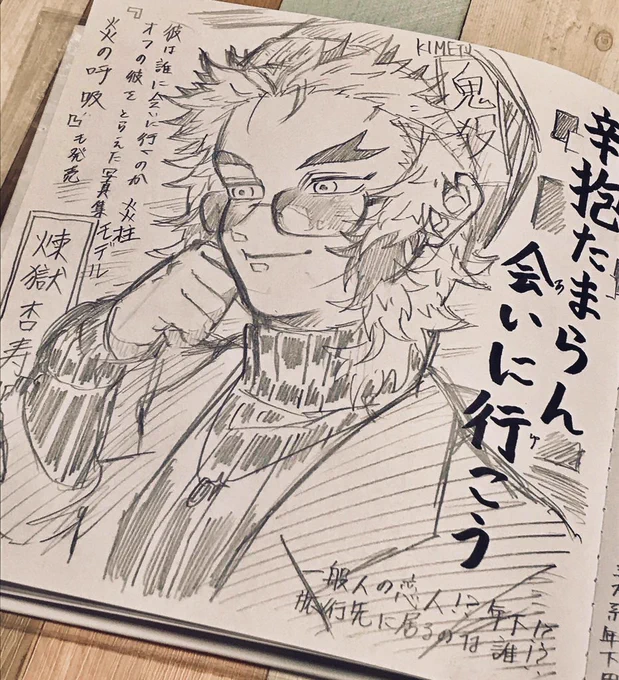 KIMETU
鬼殺
辛抱たまらん
会いに行こう
彼は誰に会いに行くのか 炎柱
オフの彼を とらえた写真集モデル
『炎の呼吸』も発売
煉獄杏寿
一般人の恋人!? 年下!?
旅行先に居るのは誰!?